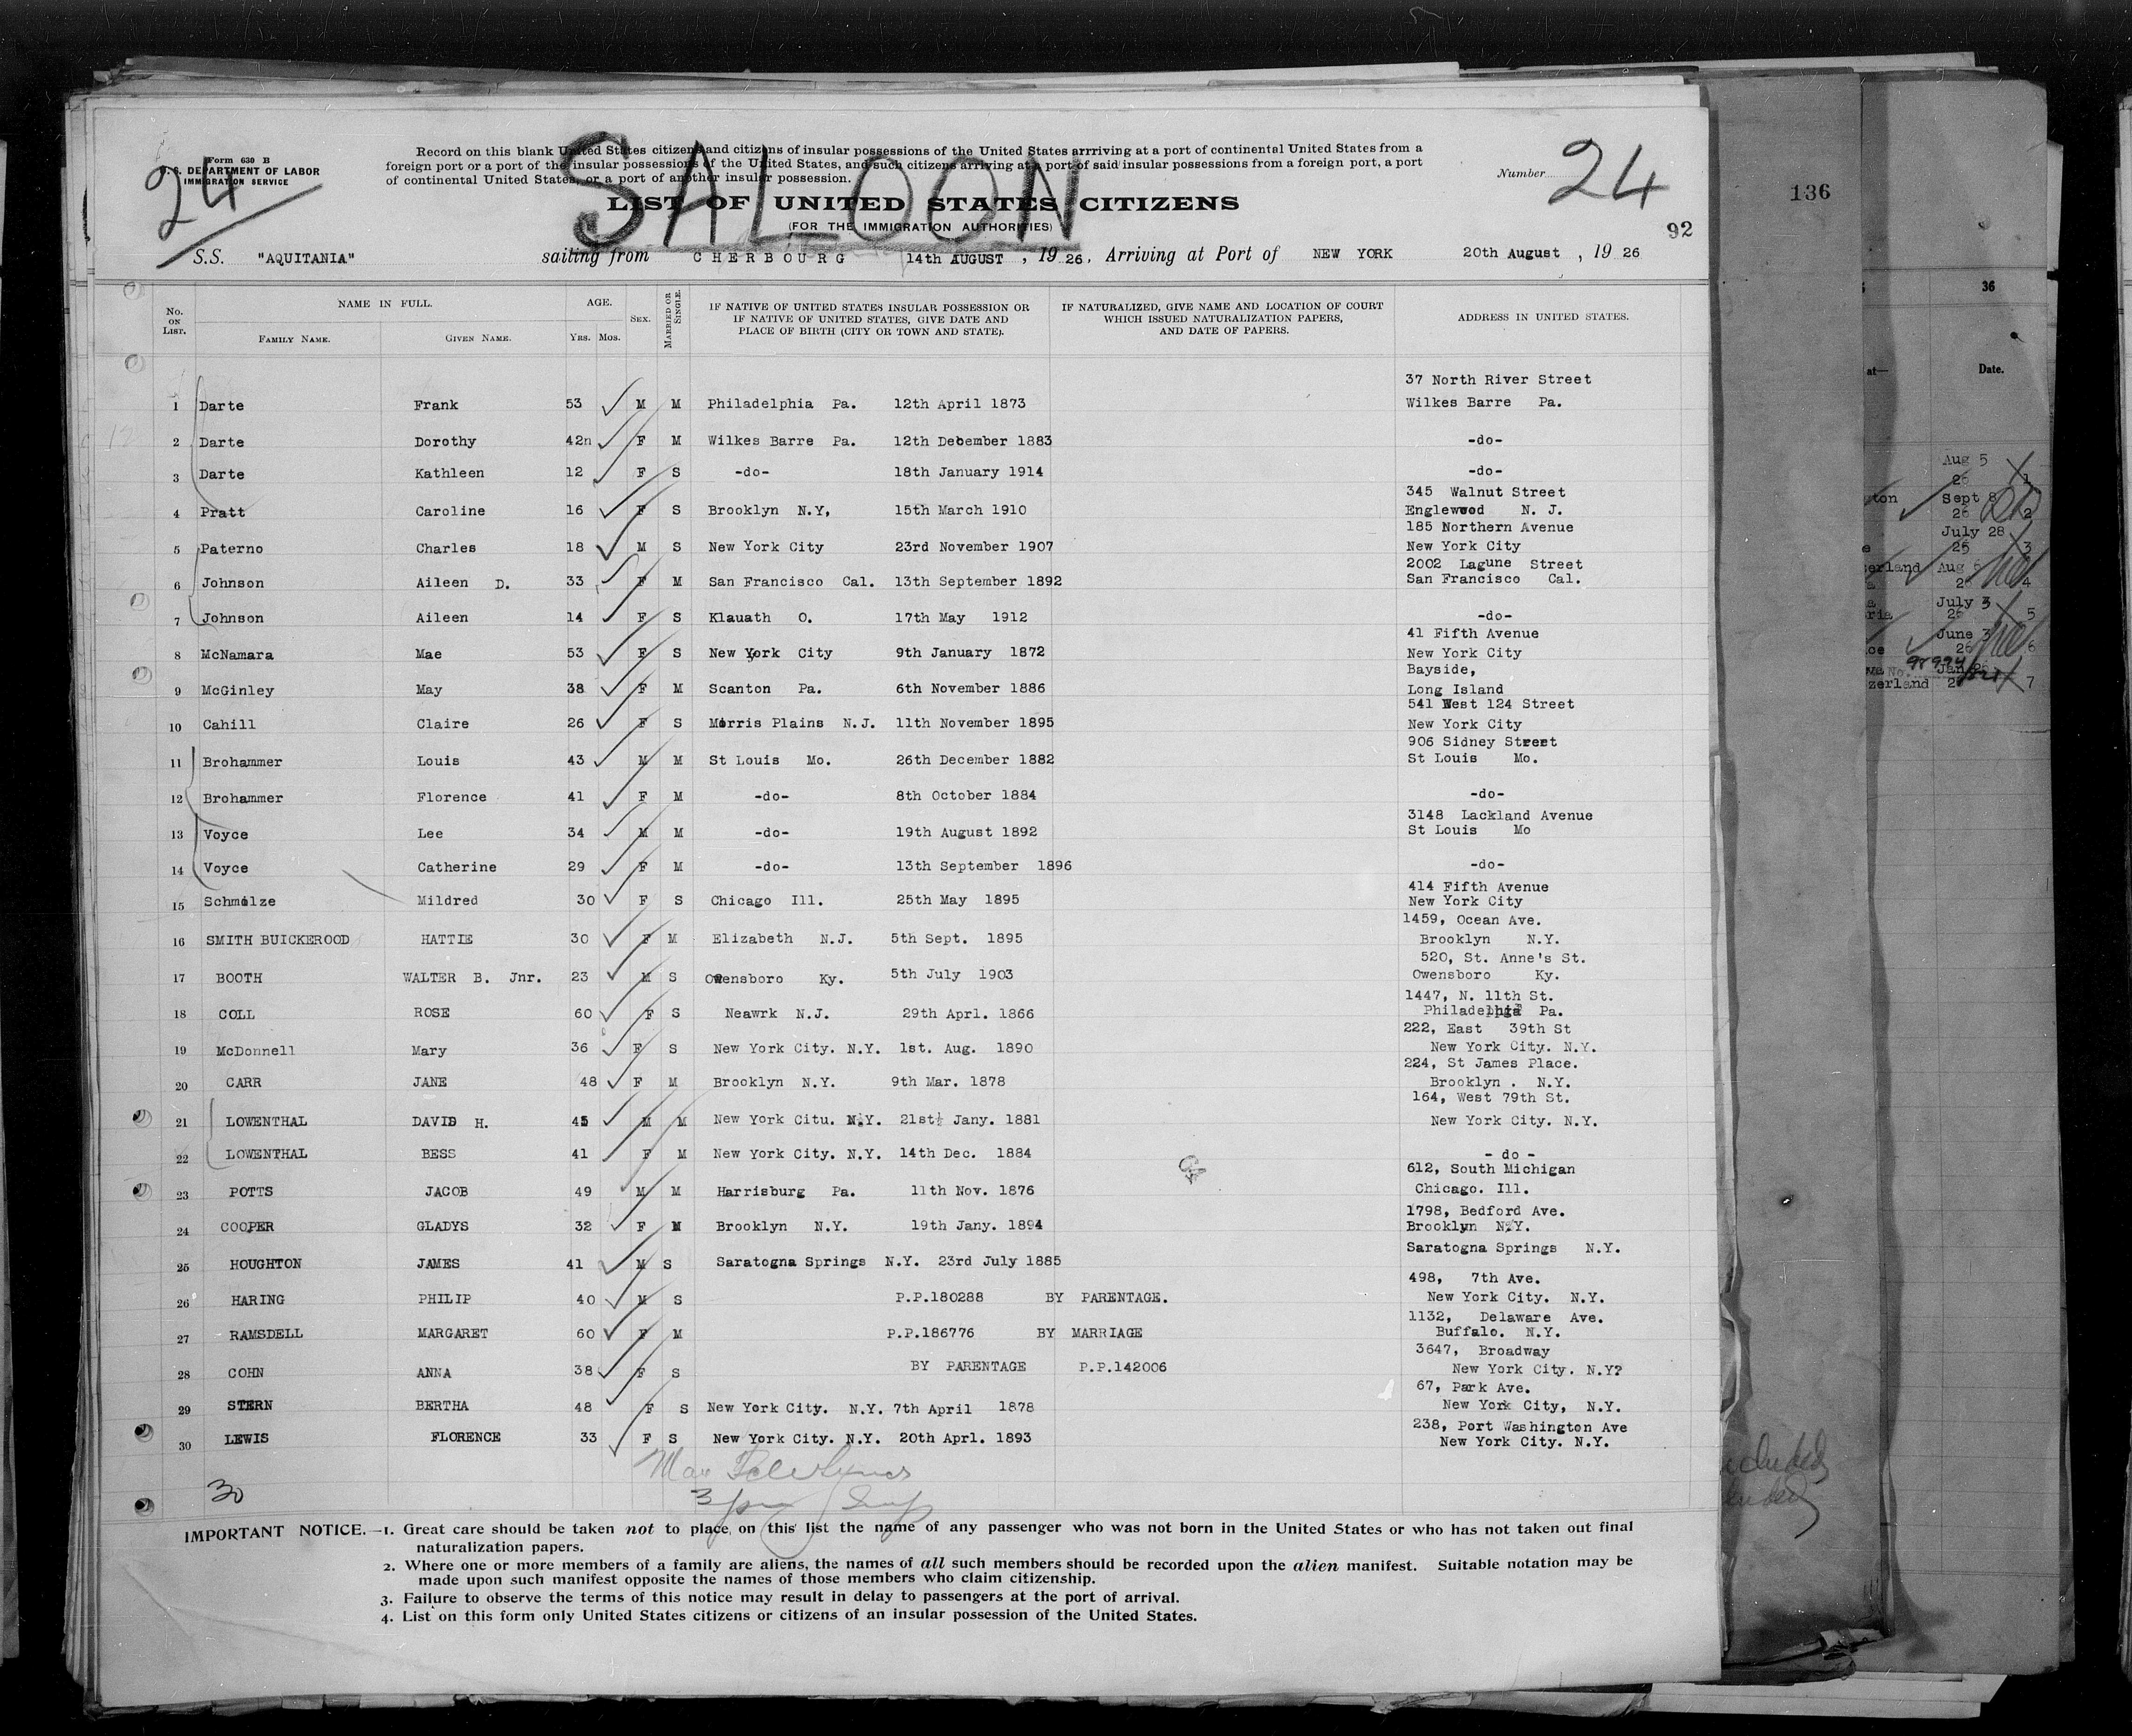 Form 630 B
U. S. DEPARTMENT OF LABOR
IMMIGRATION SERVICE
24
Record on this blank United States citizens and citizens of insular possessions of the United States arrriving at a port of continental United States from a
foreign port or a port of the insular possessions of the United States, and such citizens arriving at a port of said insular possessions from a foreign port, a port
of continental United States, or a port of another insular possession.
SALOON
Number
24
LIST OF UNITED STATES CITIZENS
(FOR THE IMMIGRATION AUTHORITIES)
92
S.S. "AQUITANIA" sailing from CHERBOURG 14th AUGUST , 19 26, Arriving at Port of NEW YORK 20th August , 19 26
No. ON LIST. NAME IN FULL. FAMILY NAME. GIVEN NAME. AGE. YRS. MOS. SEX. MARRIED OR SINGLE. IF NATIVE OF UNITED STATES INSULAR POSSESSION OR IF NATIVE OF UNITED STATES, GIVE DATE AND PLACE OF BIRTH (CITY OR TOWN AND STATE). IF NATURALIZED, GIVE NAME AND LOCATION OF COURT WHICH ISSUED NATURALIZATION PAPERS, AND DATE OF PAPERS. ADDRESS IN UNITED STATES.
37 North River Street
1 Darte Frank 53 M M Philadelphia Pa. 12th April 1873 Wilkes Barre Pa.
2 Darte Dorothy 42n F M Wilkes Barre Pa. 12th December 1883 -do-
3 Darte Kathleen 12 F S -do- 18th January 1914 -do-
345 Walnut Street
4 Pratt Caroline 16 F S Brooklyn N.Y, 15th March 1910 Englewood N. J.
185 Northern Avenue
5 Paterno Charles 18 M S New York City 23rd November 1907 New York City
2002 Lagune Street
6 Johnson Aileen D. 33 F M San Francisco Cal. 13th September 1892 San Francisco Cal.
7 Johnson Aileen 14 F S Klauath O. 17th May 1912 -do-
41 Fifth Avenue
8 McNamara Mae 53 F S New York City 9th January 1872 New York City
Bayside,
9 McGinley May 38 F M Scanton Pa. 6th November 1886 Long Island
541 West 124 Street
10 Cahill Claire 26 F S Morris Plains N.J. 11th November 1895 New York City
906 Sidney Street
11 Brohammer Louis 43 M M St Louis Mo. 26th December 1882 St Louis Mo.
12 Brohammer Florence 41 F M -do- 8th October 1884 -do-
3148 Lackland Avenue
13 Voyce Lee 34 M M -do- 19th August 1892 St Louis Mo
14 Voyce Catherine 29 F M -do- 13th September 1896 -do-
414 Fifth Avenue
15 Schmolze Mildred 30 F S Chicago Ill. 25th May 1895 New York City
1459, Ocean Ave.
16 SMITH BUICKEROOD HATTIE 30 F M Elizabeth N.J. 5th Sept. 1895 Brooklyn N.Y.
520, St. Anne's St.
17 BOOTH WALTER B. Jnr. 23 M S Owensboro Ky. 5th July 1903 Owensboro Ky.
1447, N. 11th St.
18 COLL ROSE 60 F S Neawrk N.J. 29th Aprl. 1866 Philadelphia Pa.
222, East 39th St
19 McDonnell Mary 36 F S New York City. N.Y. 1st. Aug. 1890 New York City. N.Y.
224, St James Place.
20 CARR JANE 48 F M Brooklyn N.Y. 9th Mar. 1878 Brooklyn . N.Y.
164, West 79th St.
21 LOWENTHAL DAVID H. 45 M M New York Citu. N.Y. 21st Jany. 1881 New York City. N.Y.
22 LOWENTHAL BESS 41 F M New York City. N.Y. 14th Dec. 1884 - do -
612, South Michigan
23 POTTS JACOB 49 M M Harrisburg Pa. 11th Nov. 1876 Chicago. Ill.
1798, Bedford Ave.
24 COOPER GLADYS 32 F M Brooklyn N.Y. 19th Jany. 1894 Brooklyn N.Y.
25 HOUGHTON JAMES 41 M S Saratogna Springs N.Y. 23rd July 1885 Saratogna Springs N.Y.
498, 7th Ave.
26 HARING PHILIP 40 M S P.P.180288 BY PARENTAGE. New York City. N.Y.
1132, Delaware Ave.
27 RAMSDELL MARGARET 60 F M P.P.186776 BY MARRIAGE Buffalo. N.Y.
3647, Broadway
28 COHN ANNA 38 F S BY PARENTAGE P.P.142006 New York City. N.Y?
67, Park Ave.
29 STERN BERTHA 48 F S New York City. N.Y. 7th April 1878 New York City, N.Y.
238, Port Washington Ave
30 LEWIS FLORENCE 33 F S New York City. N.Y. 20th Aprl. 1893 New York City. N.Y.
30
IMPORTANT NOTICE.—1. Great care should be taken not to place on this list the name of any passenger who was not born in the United States or who has not taken out final
naturalization papers.
2. Where one or more members of a family are aliens, the names of all such members should be recorded upon the alien manifest. Suitable notation may be
made upon such manifest opposite the names of those members who claim citizenship.
3. Failure to observe the terms of this notice may result in delay to passengers at the port of arrival.
4. List on this form only United States citizens or citizens of an insular possession of the United States.
136
36
at—
Date.
Aug 5
26
1
Sept 8
26
2
July 28
26
3
Aug
26
4
July 3
26
5
June 3
26
6
No.
7